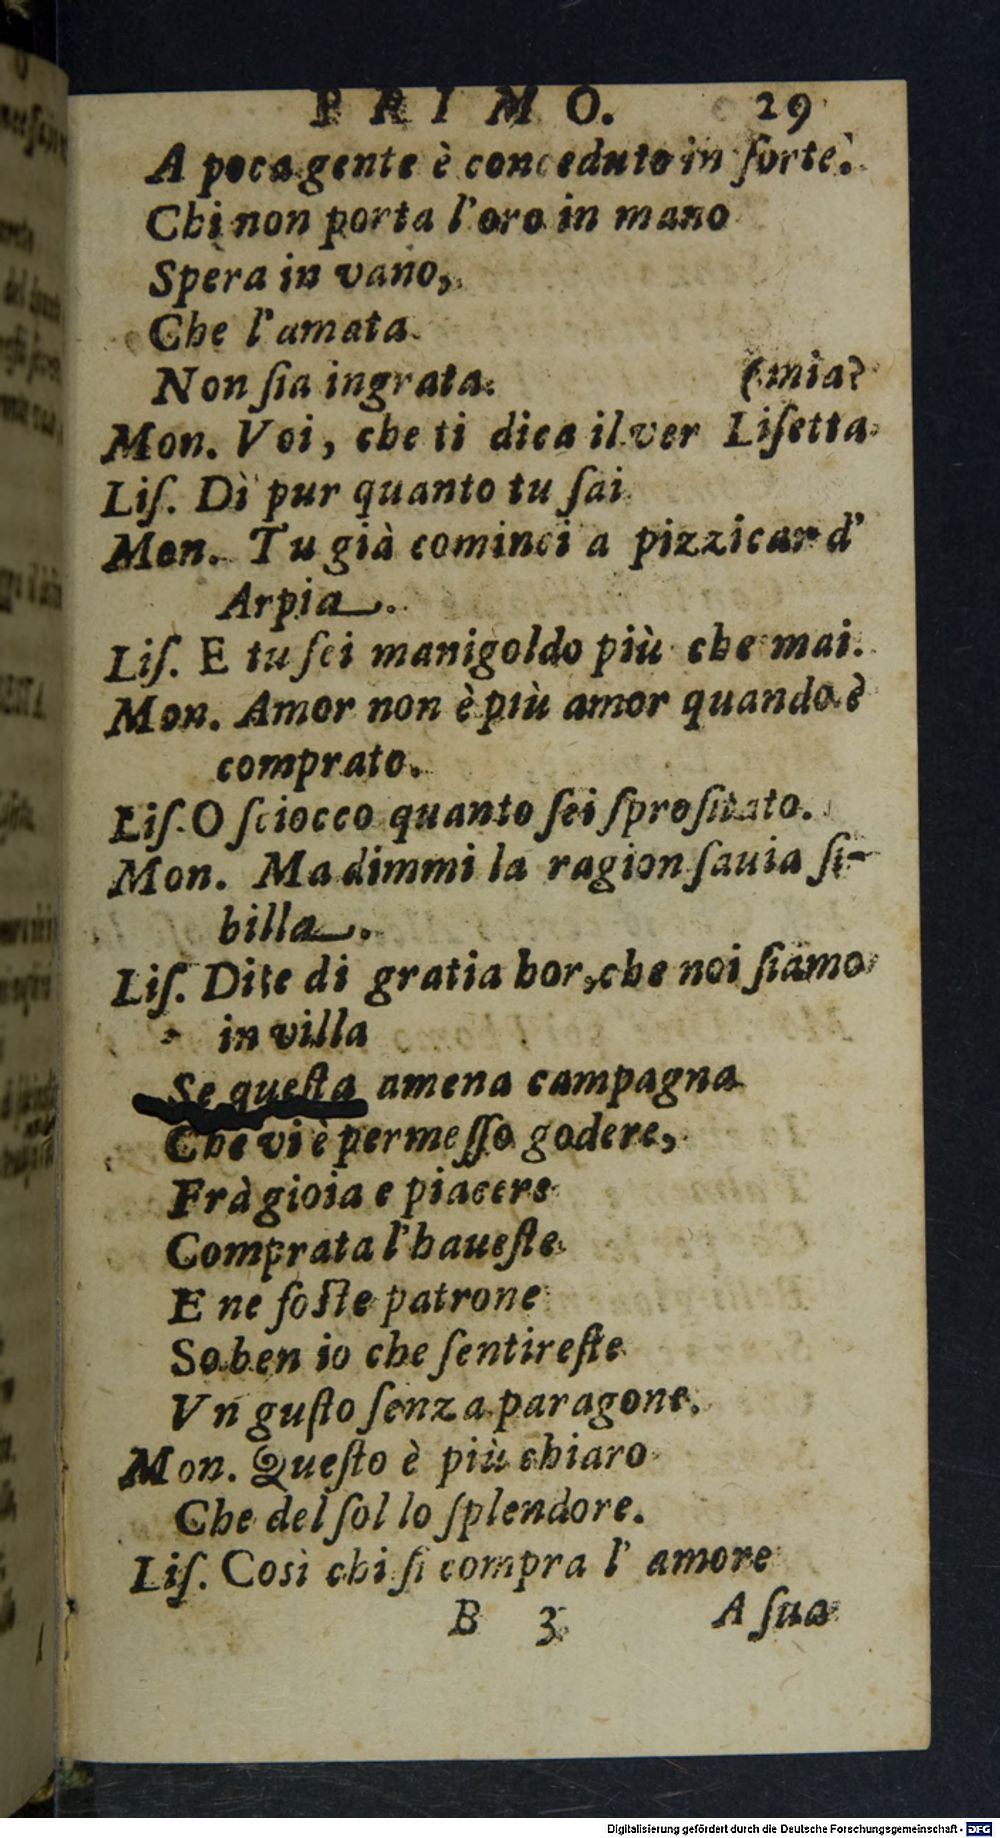 PRIMO. 29
A poca gente è conceduto in sorte.
Chi non porta l'oro in mano
Spera in vano,
Che l'amata
Non ſia ingrata. (mia?
Mon. Voi, che ti dica il ver Liſetta
Liſ. Dì pur quanto tu ſai
Mon. Tu già cominci a pizzicar d'
Arpia.
Liſ. E tu ſei manigoldo più che mai.
Mon. Amor non è più amor quando è
comprato.
Liſ. O ſciocco quanto ſei ſproſitato.
Mon. Ma dimmi la ragion ſauia ſi-
billa.
Liſ. Dite di gratia hor, che noi ſiamo
in villa
Se queſta amena campagna
Che vi è permeſſo godere,
Frà gioia e piacere
Comprata l'haueſte
E ne foſte patrone
So ben io che ſentireſte
Vn guſto ſenza paragone.
Mon. Queſto è più chiaro
Che del ſol lo ſplendore.
Liſ. Così chi ſi compra l'amore
B 3 A ſua
Digitalisierung gefördert durch die Deutsche Forschungsgemeinschaft - DFG